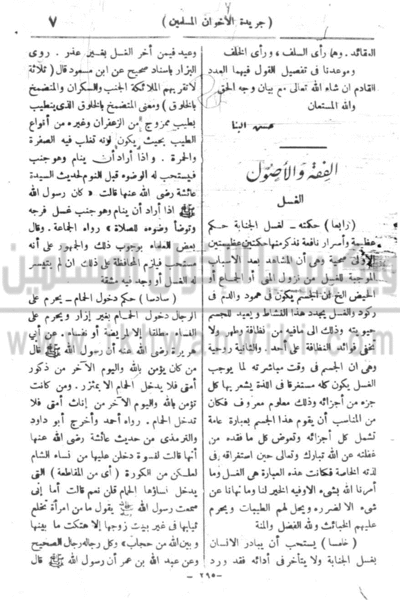 ( جريدة الاخوان المسلمين )
٧
العقائد . وهما رأى السلف ، ورأى الخلف
وموعدنا فى تفصيل القول فيهما العدد
القادم ان شاء الله تعالى مع بيان وجه الحق
والله المستعان
حسن البنا
الفقه والأصول
الغسل
(رابعا) حكمته - لغسل الجنابة حكم
عظيمة وأسرار نافعة نذكر منها حكمتين عظيمتين
الأولى صحية وهى أن المشاهد بعد الأسباب
الموجبة للغسل من نزول المنى أو الجماع أو
الحيض الخ أن الجسم يكون فى همود والدم فى
ركود والغسل يجدد هذا النشاط ويعيد للجسم
حيويته وذلك الى مافيه من نظافة وطهر ولا
تخفى فوائد النظافة على أحد. والثانية روحية
وهى ان الجسم فى وقت مباشرته لما يوجب
الغسل يكون كله مستغرقا فى اللذة يشعر بها كل
جزء من أجزائه وذلك معلوم معروف فكان
من المناسب أن يقوم هذا الجسم بعبارة عامة
تشمل كل أجزائه وتعوض كل ما فقده من
غفلته عن الله تبارك وتعالى حين استغراقه فى
لذته الخاصة فكانت هذه العبارة هى الغسل وما
أمرنا الله بشىء الا وفيه الخير لنا وما نهانا عن
شىء الا لضرره ويحل لهم الطيبات ويحرم
عليهم الخبائث ولله الفضل والمنة
(خامسا) يستحب أن يبادر الانسان
بغسل الجنابة ولا يتأخر فى أدائه فقد ورد
وعيد فيمن أخر الغسل بغير عذر . روى
البزار باسناد صحيح عن ابن مسعود قال (ثلاثة
لا تقربهم الملائكة الجنب والسكران والمتضمخ
بالخلوق) ومعنى المتضمخ بالخلوق الذى يتطيب
بطيب ممزوج من الزعفران وغيره من أنواع
الطيب بحيث يكون لونه تغلب فيه الصفرة
والحمرة . واذا أراد أن ينام وهو جنب
فيستحب له الوضوء قبل النوم لحديث السيدة
عائشة رضى الله عنها قالت « كان رسول الله
ﷺ اذا أراد أن ينام وهو جنب غسل فرجه
وتوضأ وضوءه للصلاة » رواه الجماعة . وقال
بعض العلماء بوجوب ذلك والجمهور على أنه
مستحب فيلزم المحافظة على ذلك ان لم يتيسر
له الغسل أو وجد فيه مشقة
(سادسا) حكم دخول الحمام - يحرم على
الرجال دخول الحمام بغير إزار ويحرم على
النساء مطلقا إلا لمريضة أو نفساء . عن أبى
هريرة رضى الله عنه أن رسول الله ﷺ قال
من كان يؤمن بالله واليوم الآخر من ذكور
أمتى فلا يدخل الحمام الا بمئزر . ومن كانت
تؤمن بالله واليوم الآخر من إناث أمتى فلا
تدخل الحمام . رواه أحمد وأخرج أبو داود
والترمذى من حديث عائشة رضى الله عنها
أنها قالت لنسوة دخلن عليها من نساء الشام
لعلكن من الكورة (أى من المقاطعة) التى
يدخل نساؤها الحمام قلن نعم قالت أما إنى
سمعت رسول الله ﷺ يقول ما من امرأة تخلع
ثيابها فى غير بيت زوجها إلا هتكت ما بينها
وبين الله من حجاب » وكل رجاله رجال الصحيح
وعن عبد الله بن عمر أن رسول الله ﷺ قال
- ٢٩٥ -